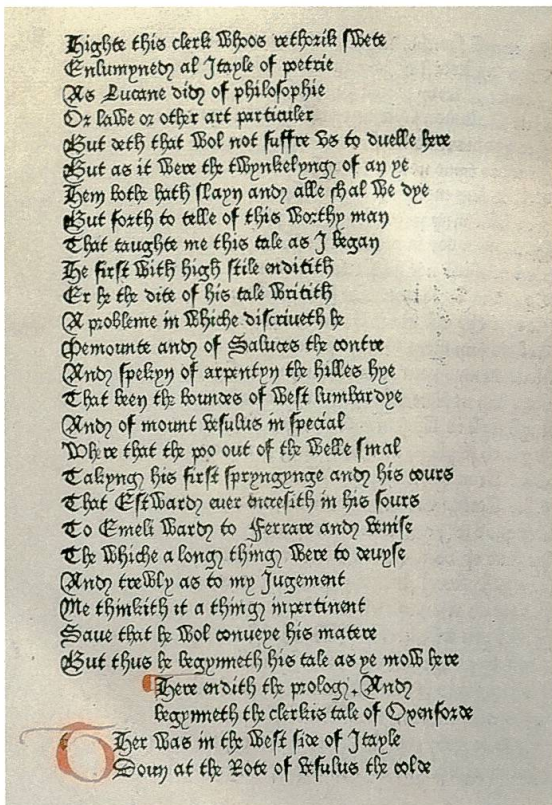 Highte this clerk whoos rethorik swete
Enlumyned al Itayle of petrie
As Lucane did of philosophie
Or lawe or other art particuler
But deth that wol not suffre vs to duelle here
But as it were the twynkelyng of an ye
Hem bothe hath slayn and alle shal we dye
But forth to telle of this worthy man
That taughte me this tale as I began
He first with high stile enditith
Er he the dite of his tale writith
A probleme in whiche discriueth he
Pemounte and of Saluces the contre
And spekyn of arpentyn the hilles hye
That been the boundes of west lumbardye
And of mount vesulus in special
Where that the poo out of the welle smal
Takyng his first spryngynge and his cours
That Estward euer encresith in his sours
To Emeli ward to Ferrare and venise
The whiche a long thing were to deuyse
And trewly as to my Iugement
Me thinkith it a thing inpertinent
Saue that he wol conueye his matere
But thus he begynneth his tale as ye mow here
Here endith the prolog. And
begynneth the clerkis tale of Oxenforde
Ther was in the west side of Itayle
Doun at the Rote of vesulus the colde